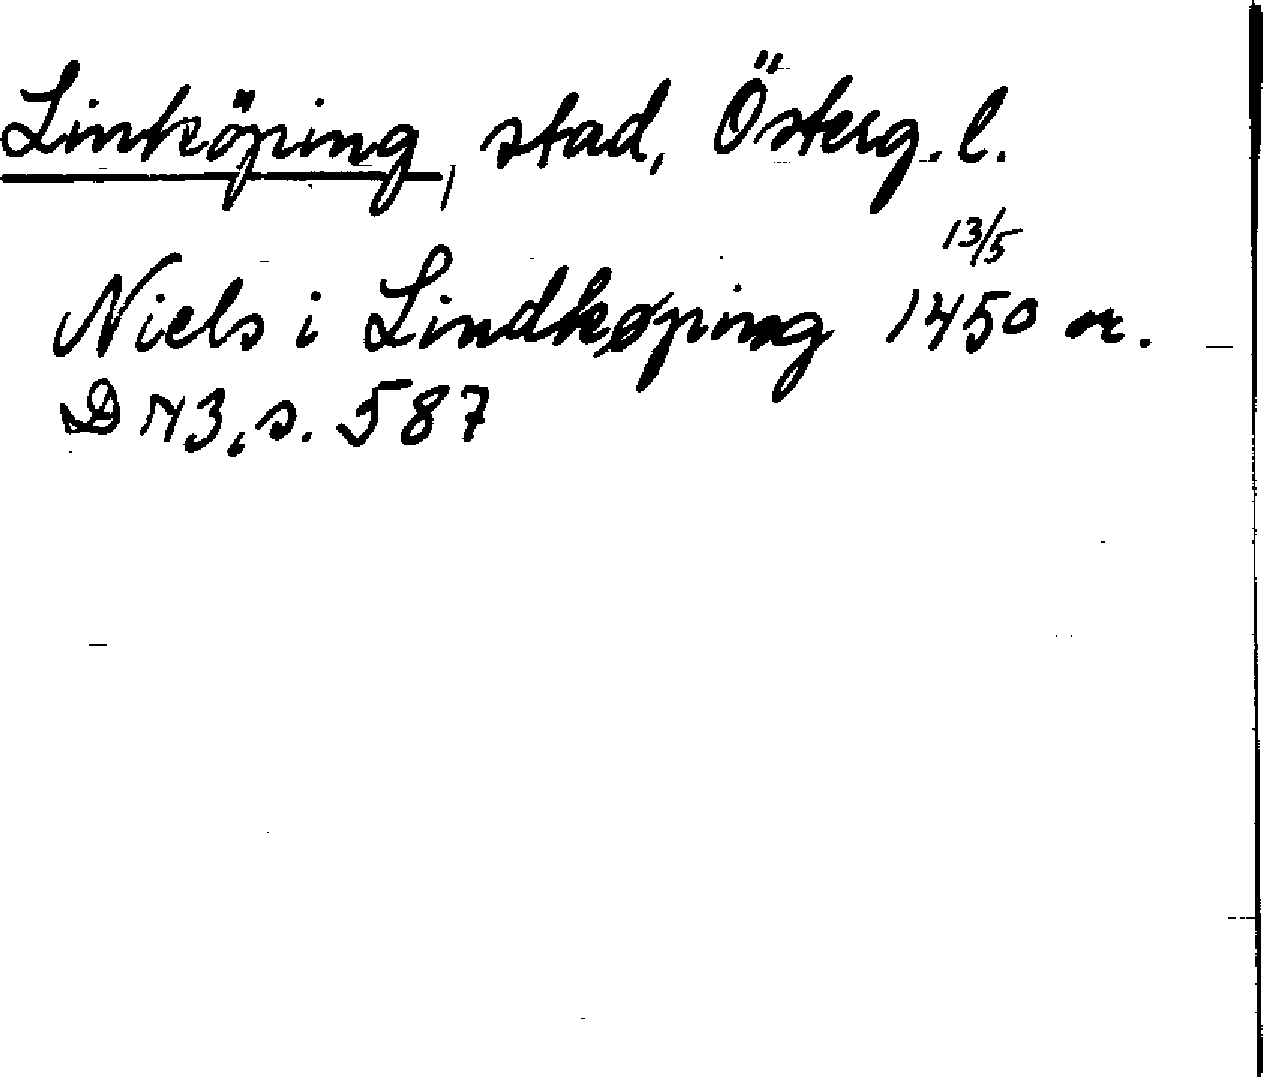 Linköping, stad, Österg. l.
Niels i Lindkøping 13/5 1450 or.
D N 3, s. 587